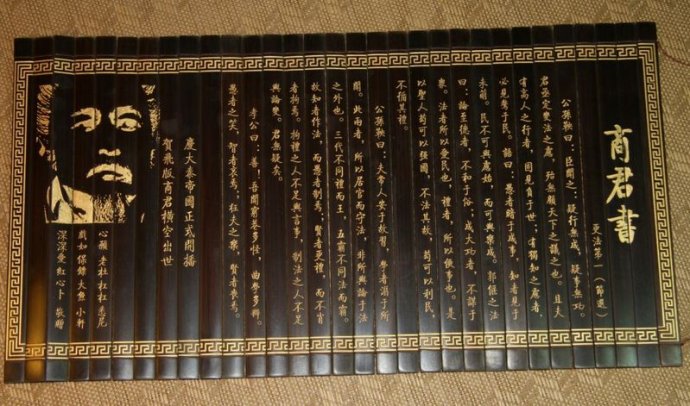 商君書
更法第一（節選）
公孫鞅曰：臣聞之：疑行無成，疑事無功。
君亟定變法之慮，殆無顧天下之議之也。且夫
有高人之行者，固見負于世；有獨知之慮者
必見驁于民。語曰：愚者暗于成事，知者見于
未萌。民不可與慮始，而可與樂成。郭偃之法
曰：論至德者，不和于俗；成大功者，不謀于
衆。法者所以愛民也，禮者，所以便事也。是
以聖人苟可以强國，不法其故，苟可以利民，
不循其禮。
公孫鞅曰：夫常人安于故習，學者溺于所
聞。此兩者，所以居官而守法，非所與論于法
之外也。三代不同禮而王，五霸不同法而霸。
故知者作法，而愚者制焉；賢者更禮，而不肖
者拘焉。拘禮之人不足與言事，制法之人不足
與論變。君無疑矣。
孝公曰：善！吾聞窮巷多怪，曲學多辯。
愚者之笑，智者哀焉；狂夫之樂，賢者喪焉。
慶大秦帝國正式開播
賀飛版商君橫空出世
心願 老杜 杜杜 悉尼
蔚如 保鏢 大熊 小軒
深深愛 紅心卜 敬贈